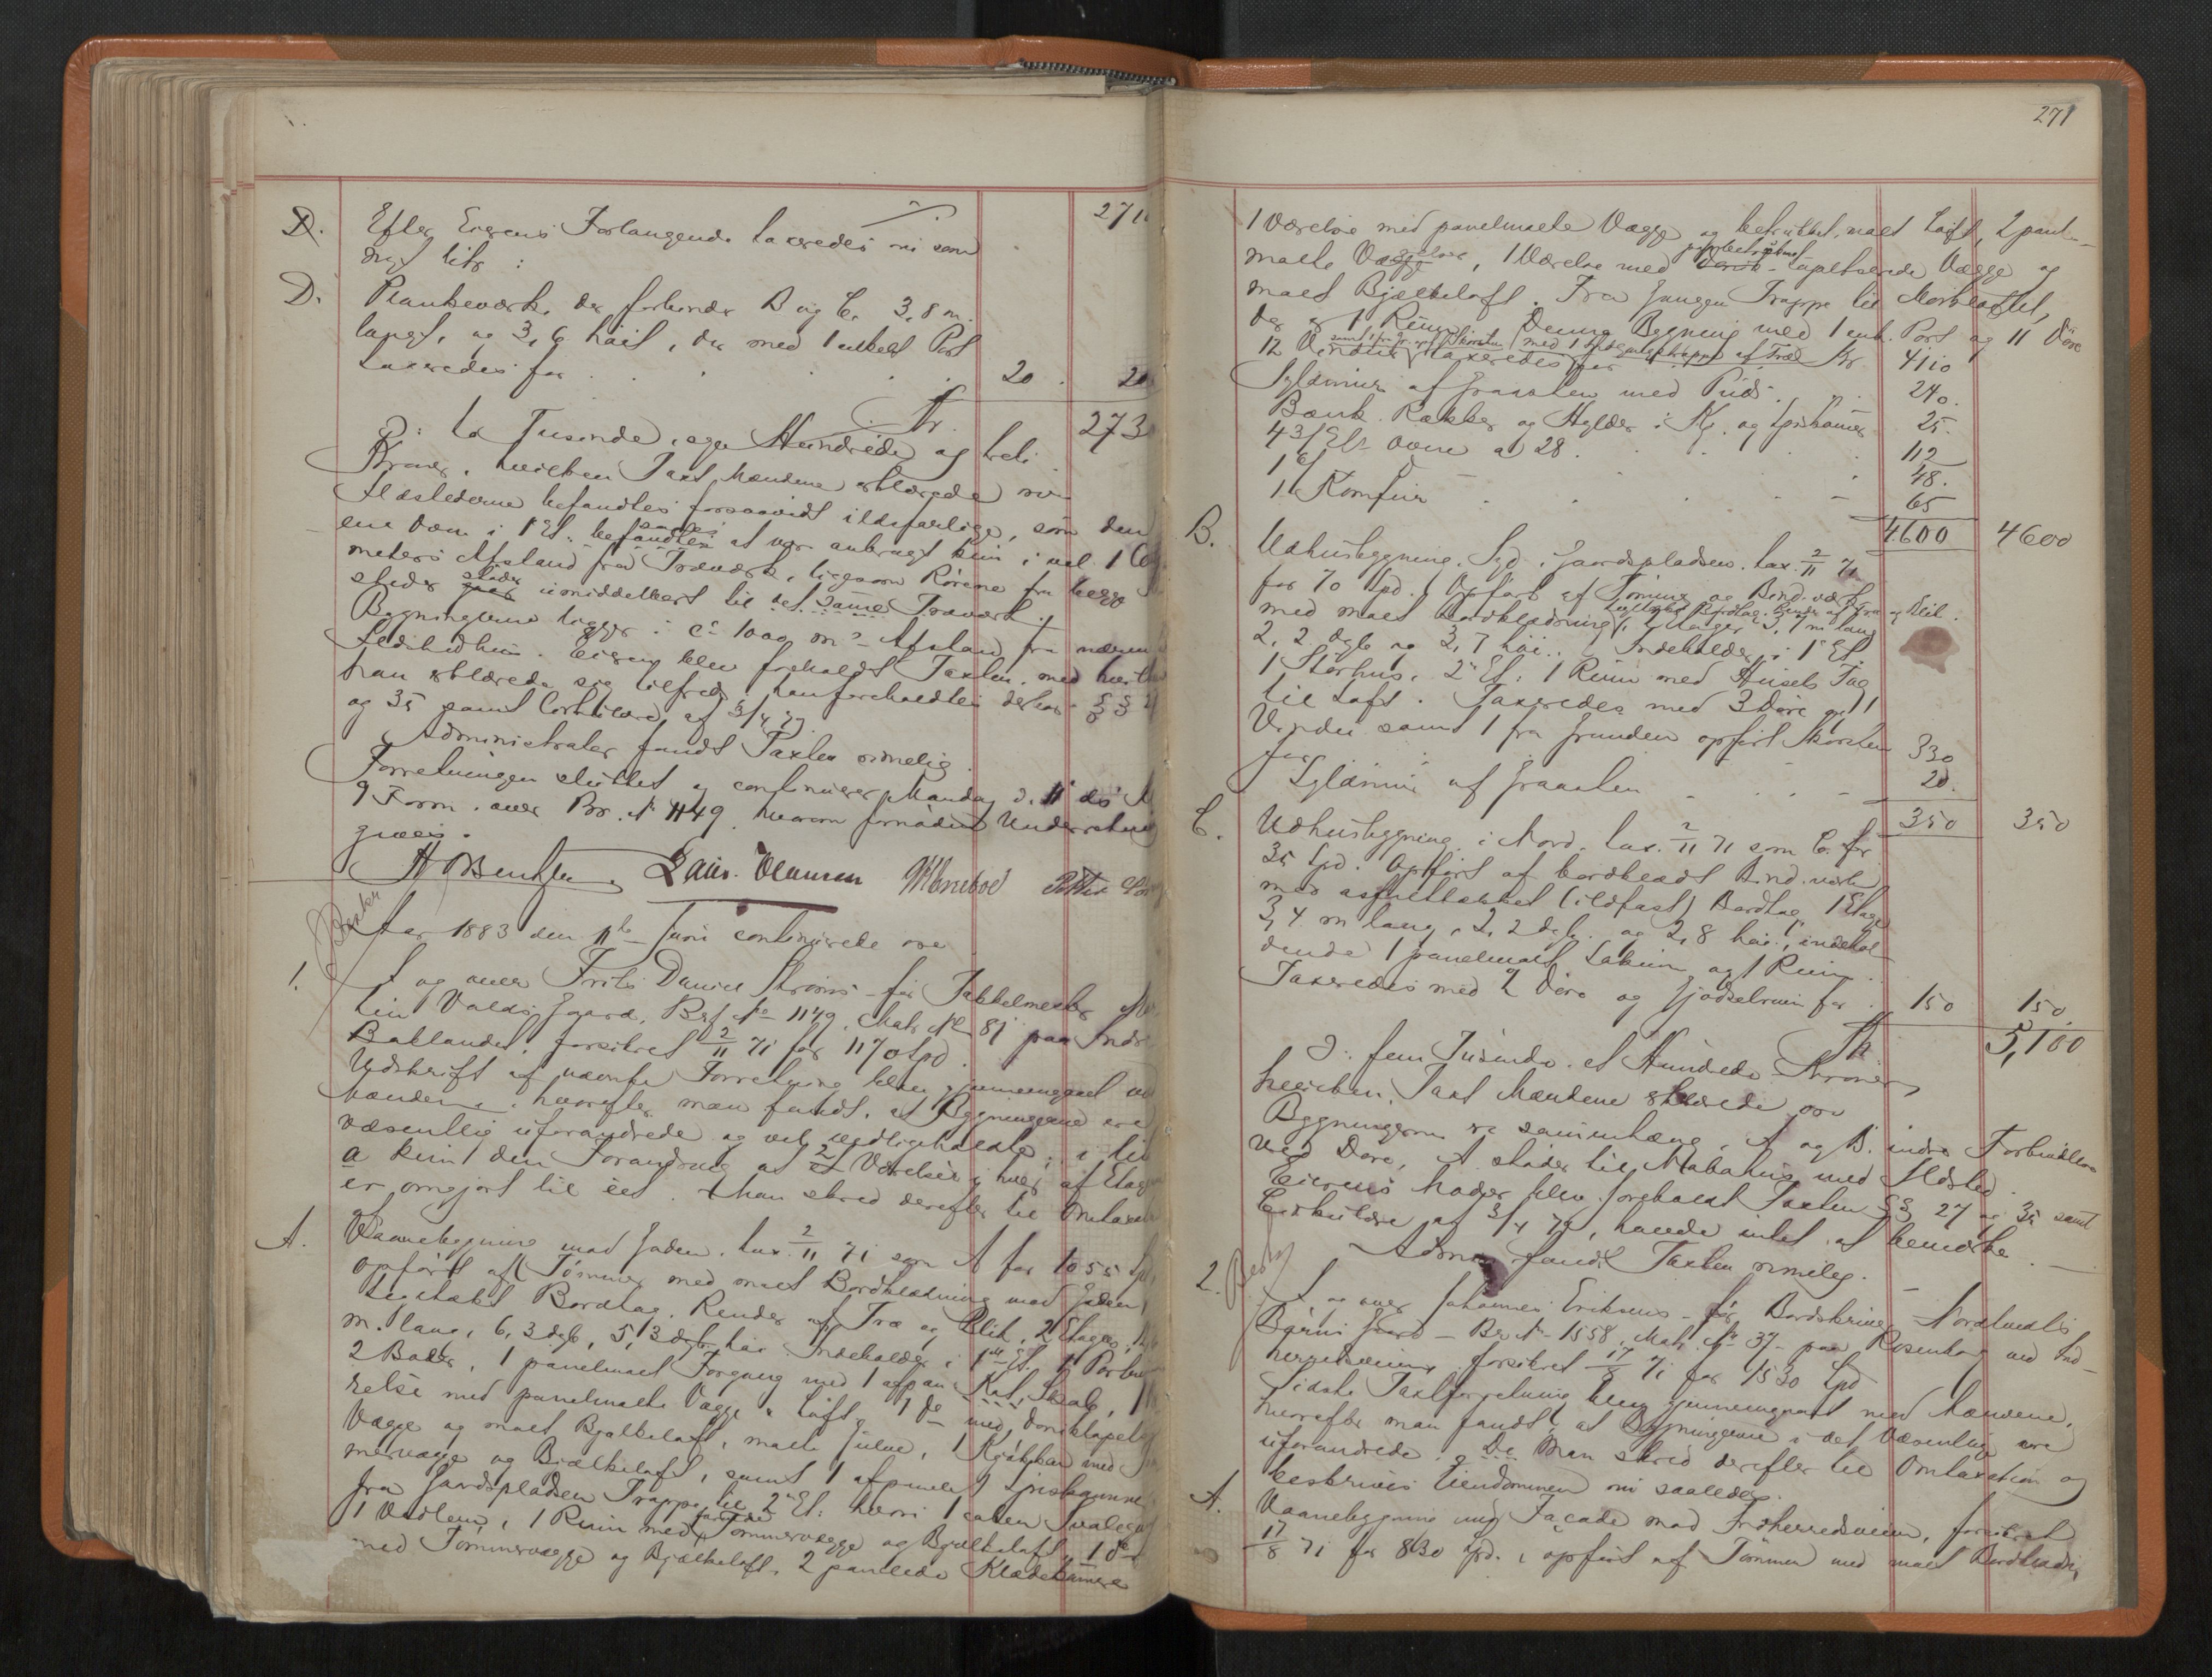 D. Efter Eierens Forlangende taxeredes ni som 271
dygt litr :
D. Plankeværk, der forbinder B og C. 3,8 m.
langt, og 3,6 høit, der med 1 enkelt Port
taxeredes for 20. 20
Kr. 273
ɔ: to Tusinde, syv Hundrede og treti
Kroner, hvilken Taxt Mændene erklærede
Ildstederne befandtes forsaavidt ildsfarlige, som den
ene Ovn i 1ste Et. befandtes at være anbragt kun i
meters Afstand fra Træværk, ligesom Rørene fra begge
steder støder umiddelbart til det samme Træværk.
Bygningerne ligger i ca 1000 m Afstand fra nærm
Ildstedhus. Eieren blev foreholdt Taxten, med hvilken
han erklærede sig tilfreds, han foreholdtes derhos §§ 27
og 35 samt Cirkulære af 3/4 79.
Administrator fandt Taxten rimelig.
Forretningen sluttet og continuerer Mandag d. 11 ds Kl
9 Form. over Br. N 1149, hvorom fornøden Underretning
gives.
H Bentzen. Laur. Clausen
Beskr
Aar 1883 den 11te Juni continuerede
1. I og over Frits Daniel Strøms – før Takkelmester
tin Valds Gaard, Brf No 1149, Matr No 81 paa Indre
Baklandet, forsikret 2/11 71 for 1170 Spd.
Udskrift af nævnte Forretning blev gjennemgaaet
Mændene, hvorefter man fandt, at Bygningerne ere
væsentlig uforandrede og vel vedligeholdte, i litr
a kun den Forandring at 2 Værelser i hver af Etagerne
er omgjort til eet. Man skred derefter til Omtaxation
A. Vaanebygning mod Gaden, tax. 2/11 71 som A for 1055 Spd,
opført af Tømmer med malet Bordklædning mod Gaden,
teglhakt Bordtag, Render af Træ og Blik, 2 Etager,
m. lang, 6,3 dyb, 5,3 høi. Indeholder i 1ste Et. 1 Portrum
2 Boder, 1 panelmalt Forgang med 1 afpan. Kat, Skab, 1
relse med panelmalte Vægge & Loft, 1 do med
Vægge og malet Bjælkeloft, malte Gulve, 1 Kjøkken med
mervægge og Bjælkeloft, samt 1 afpanelet Spiskammer
fra Gaardspladsen Trappe til 2den Et. hvori 1 aaben Svalegang
1 Vedlem, 1 Rum med Tømmervægge og Bjælkeloft, 1 do
med Tømmervægge og Bjælkeloft, 2 panelede Klædekamre
271
1 Værelse med panelmalte Vægge og betrukket, malt Loft, 2 panel-
malte Værelser, 1 Værelse med tapetserede Vægge og
malet Bjælkeloft. Fra Gangen Trappe til Mørkloftet,
der er 1 Rum. Denne Bygning med 1 enk. Port og 11 Døre
12 Vinduer samt 1 fra Gr. opf. Skorsten med 1 Opgangstrappe af Træ Kr. 4110
Sylmur af Graasten med Puds 240.
Bænk, Rækker og Hylder i Kj. og Spiskamer 25.
4 3/ Et. Ovne a 28 112
1 6/ 48.
1 Komfur 65
4600 4600
B. Udhusbygning, Syd i Gaardspladsen, tax. 2/11 71
for 70 Spd. Opført af Tømmer og Bind.værk
med malet Bordklædning, teglhakt Bordtag, Render af Træ og Blik.
2 Etager 3,7 m lang
2,2 dyb og 3,7 høi. Indeholder i 1ste Et.
1 Størhus, 2den Et: 1 Rum med Husets Tag
til Loft. Taxeredes med 3 Døre og 1
Vindu samt 1 fra Grunden opført Skorsten
for 330
Sylmur af Graasten 20.
350 350
C. Udhusbygning i Nord, tax. 2/11 71 som C. for
35 Spd. Opført af bordklædt Bind.værk
med asfaltlakket (ildfast) Bordtag, 1 Etage
3,4 m lang, 2,2 dyb og 2,8 høi, indehol-
dende 1 panelmalt Lokum og 1 Rum.
Taxeredes med 2 Døre og Gjødselrum for 150 150.
Kr. 5,100
ɔ: fem Tusinde et Hundrede Kroner,
hvilken Taxt Mændene erklærede
Bygningerne ere sammenhæng, A og B. indre Forbindelse
ved Døre, A støder til Nabohus med Ildsted.
Eierens Moder blev foreholdt Taxten §§ 27 og 35 samt
Cirkulære af 3/4 79, havde intet at bemærke.
Admr. fandt Taxten rimelig.
2. Beskr
I og over Johannes Eriksens – før Bordskriver Nordwalds
Børns Gaard – Br No 1558, Matr. No 37 paa Rosenborg ved Ind-
herredsveien, forsikret 17/8 71 for 1530 Spd.
Sidste Taxtforretning blev gjennemgaaet med Mændene,
hvorefter man fandt, at Bygningerne i det Væsentlige ere
uforandrede. Man skred derefter til Omtaxation og
beskrives Eiendommen nu saaledes.
A. Vaanebygning med Façade mod Indherredsveien, forsikret
17/8 71 for 830 Spd., opført af Tømmer med malet Bordklædn.